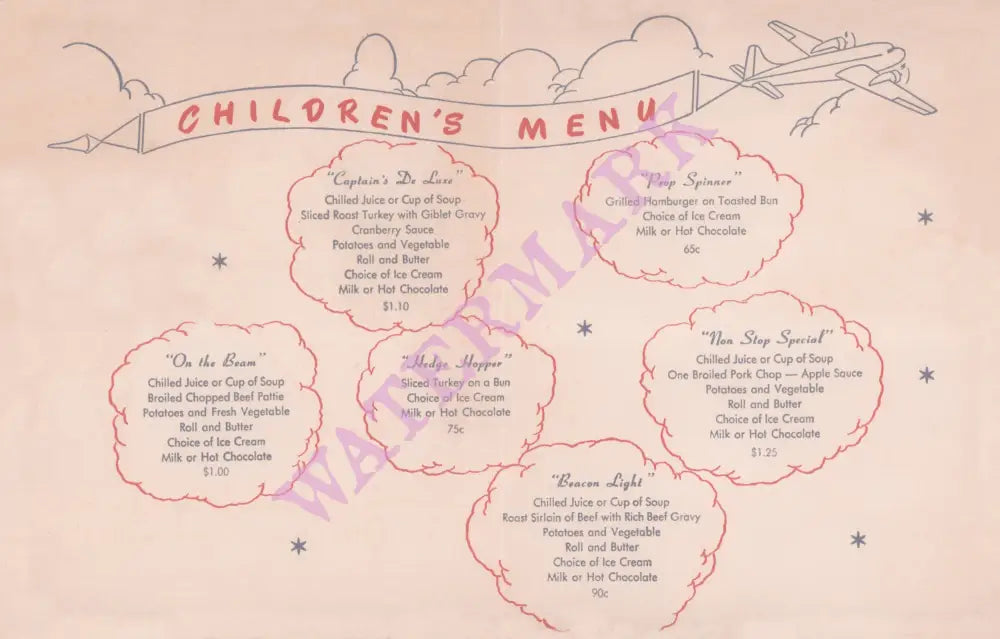 CHILDREN'S MENU
"Captain's De Luxe"
Chilled Juice or Cup of Soup
Sliced Roast Turkey with Giblet Gravy
Cranberry Sauce
Potatoes and Vegetable
Roll and Butter
Choice of Ice Cream
Milk or Hot Chocolate
$1.10
"Prop Spinner"
Grilled Hamburger on Toasted Bun
Choice of Ice Cream
Milk or Hot Chocolate
65c
"On the Beam"
Chilled Juice or Cup of Soup
Broiled Chopped Beef Pattie
Potatoes and Fresh Vegetable
Roll and Butter
Choice of Ice Cream
Milk or Hot Chocolate
$1.00
"Hedge Hopper"
Sliced Turkey on a Bun
Choice of Ice Cream
Milk or Hot Chocolate
75c
"Non Stop Special"
Chilled Juice or Cup of Soup
One Broiled Pork Chop — Apple Sauce
Potatoes and Vegetable
Roll and Butter
Choice of Ice Cream
Milk or Hot Chocolate
$1.25
"Beacon Light"
Chilled Juice or Cup of Soup
Roast Sirloin of Beef with Rich Beef Gravy
Potatoes and Vegetable
Roll and Butter
Choice of Ice Cream
Milk or Hot Chocolate
90c
WATERMARK